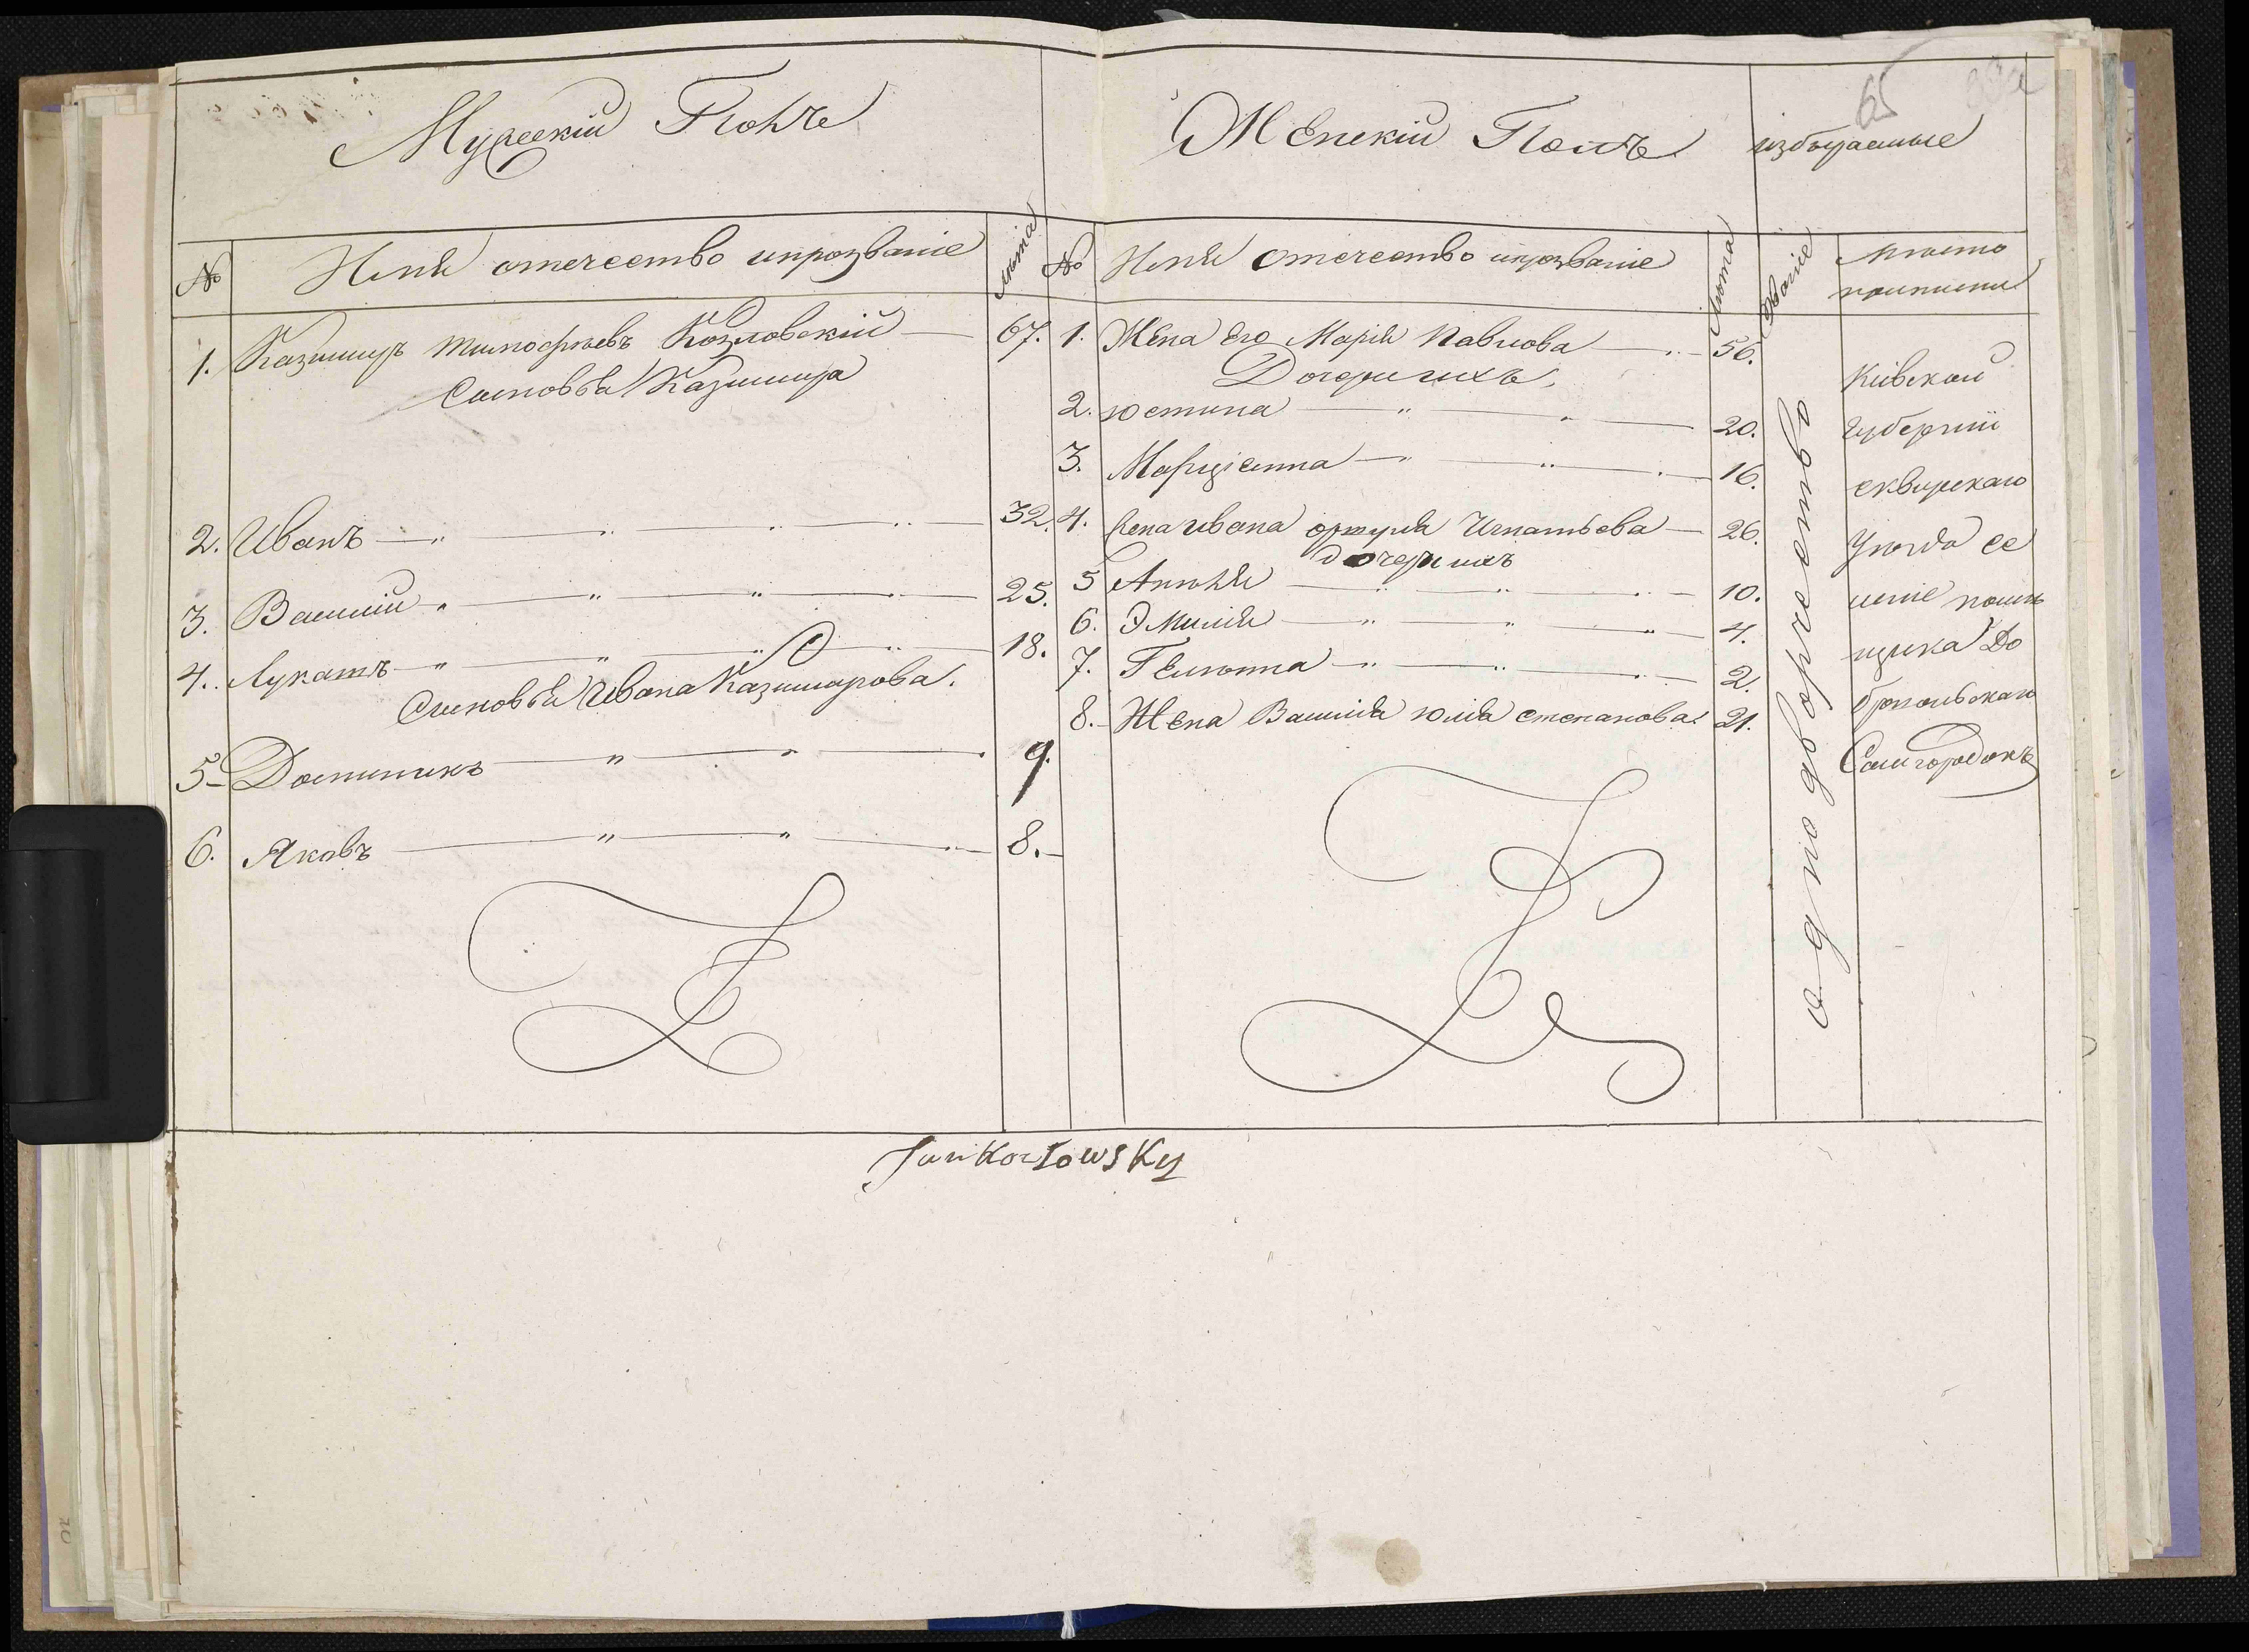 65
Мужескій Полъ
Женскій Полъ
избираемые
№
Имя отечество ипрозваніе
лѣта
№
Имя отечество ипрозваніе
лѣта
Званіе
мѣсто
приписки
1. Казимиръ тимофѣевъ Козловскій — 67.
Сыновья Казимира
2. Иванъ — " — " — " — " — 32.
3. Василій " — " — " — " — 25.
4. Лукашъ — " — " — " — " — 18.
Сыновья Ивана Казимирова.
5 - Доминикъ — " — " — 9.
6. Яковъ — " — " — " — 8. -
1. Жена Его Марія Павлова — " — 56.
Дочери ихъ.
2. юстина — " — " — 20.
3. Марціанна — " — " — " — 16.
4. жена ивана Игнатьева — 26.
дочери ихъ
5 Анѣля — " — " — " — 10.
6. Эмилія — " — " — " — 4.
7. Гелѣнна — " — " — " — 2.
8. - Жена Василія юлія степанова. 21.
однодворчество
Кіевской
Губерніи
сквирскаго
Уѣзда се
леніе помѣ
щика До
Самгородокъ
Jan Kozlowsky